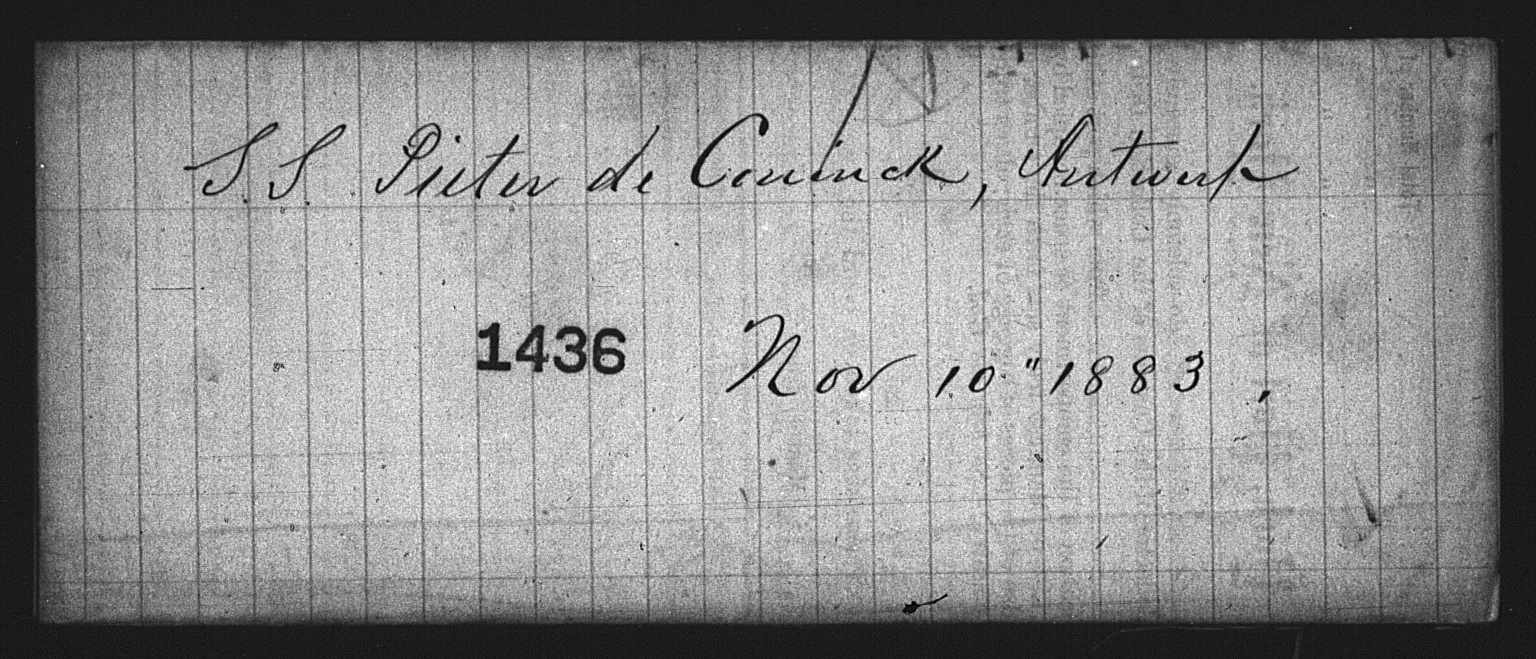 S.S. Pieter de Coninck, Antwerp
1436 Nov 10" 1883.